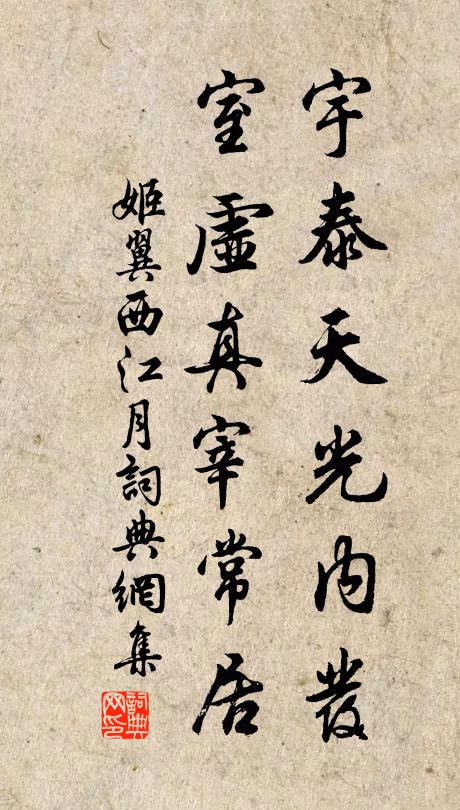 宇泰天光內發
室虛真宰常居
姬翼西江月詞典網集
詞典网印